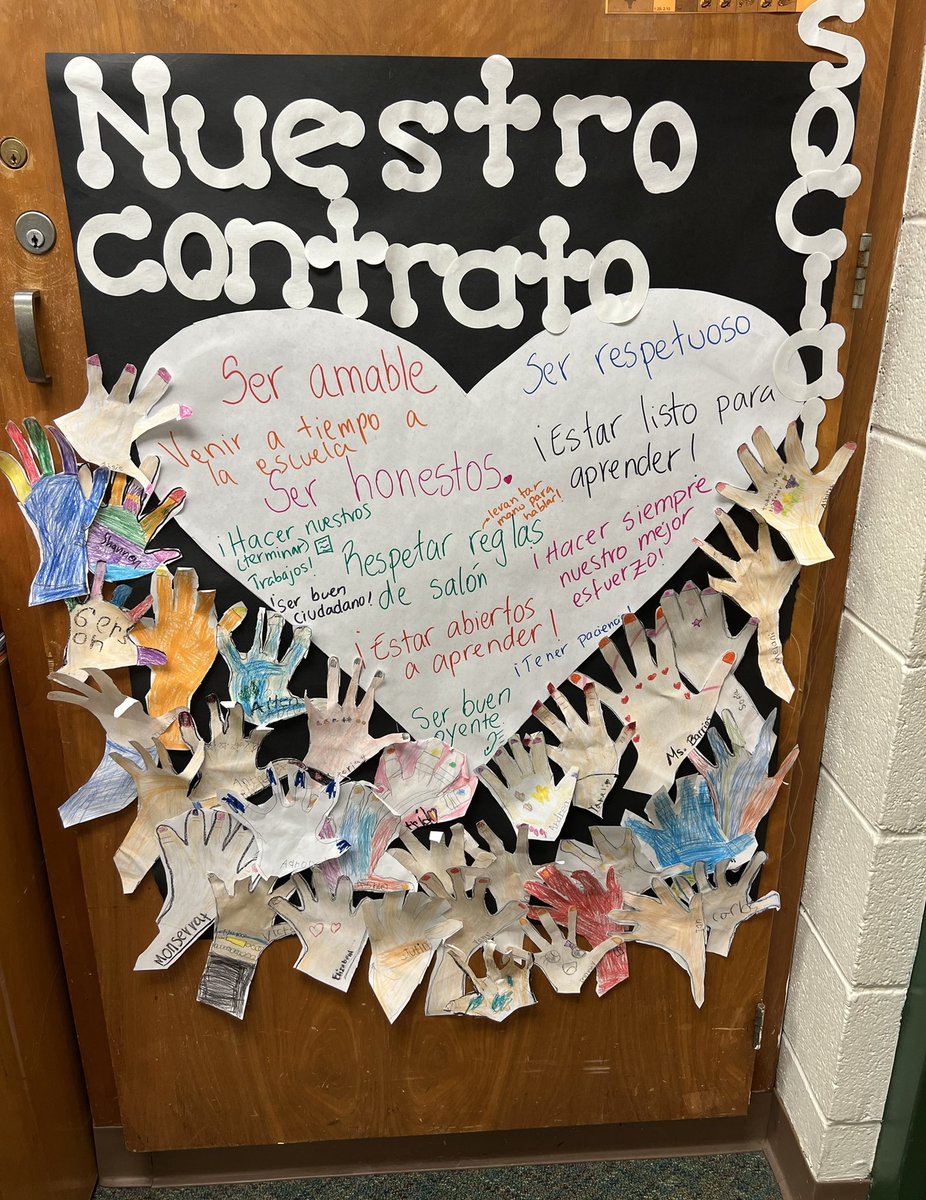 Nuestro
contrato
social
Ser amable
Ser respetuoso
Venir a tiempo a
la escuela
¡Estar listo para
aprender!
Ser honestos.
¡Hacer nuestros
(terminar)
Trabajos!
-levantar
mano para
hablar!
Respetar reglas
de salón
¡Hacer siempre
nuestro mejor
esfuerzo!
¡Ser buen
ciudadano!
¡Estar abiertos
a aprender!
¡Tener paciencia!
Ser buen
oyente
Gers
on
Ms. Barrios
Monserrat
Elizabeth